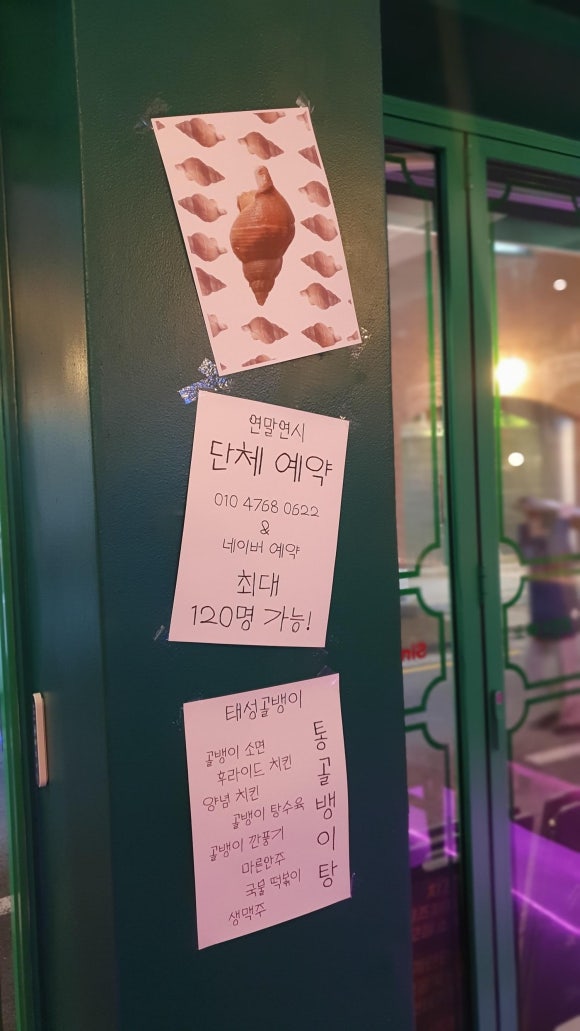 연말연시
단체 예약
010 4768 0622
&
네이버 예약
최대
120명 가능!
태성골뱅이
골뱅이 소면
후라이드 치킨
양념 치킨
골뱅이 탕수육
골뱅이 깐풍기
마른안주
국물 떡볶이
생맥주
통골뱅이탕
Sin